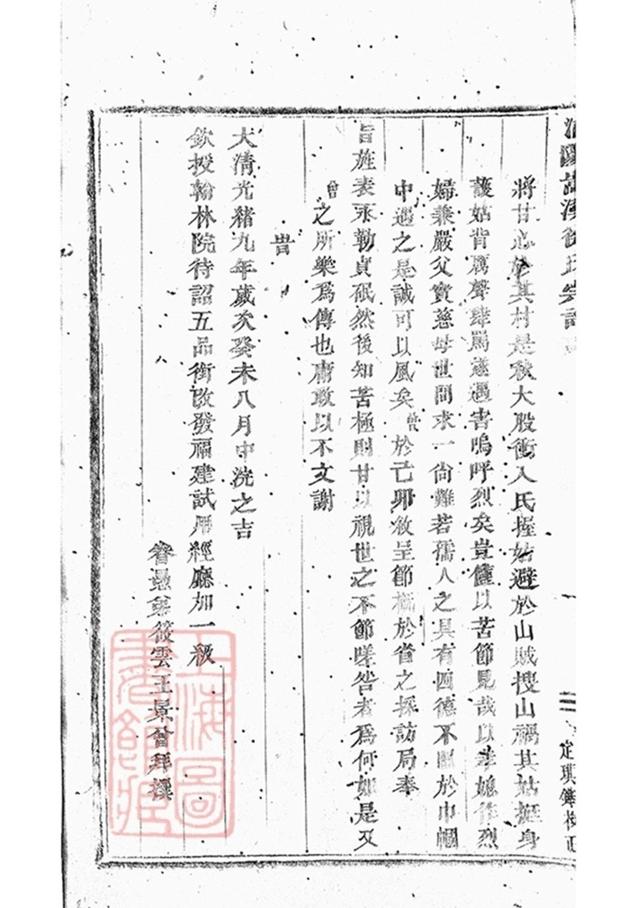 將甘心於其村是秋大股衝入氏挰姑避於山賊搜山禍其姑挺身
護姑背厲聲肆罵遂遇害嗚呼烈矣豈僅以苦節見哉以孝媳作烈
婦兼嚴父實慈母世間求一尚難若孺人之具有四德不圖於巾幗
中遇之是誠可以風矣曾於己卯敘呈節概於省之採訪局奉
旨旌表永勒貞珉然後知苦極則甘以視世之不節嗟咎者為何如是又
曾之所樂為傳也庸敢以不文謝
時
大清光緒九年歲次癸未八月中浣之吉
欽授翰林院待詔五品銜改發福建試用經廳加一級
眷愚弟筱雲王景曾拜撰
定琪鐫校正
上海圖書館藏